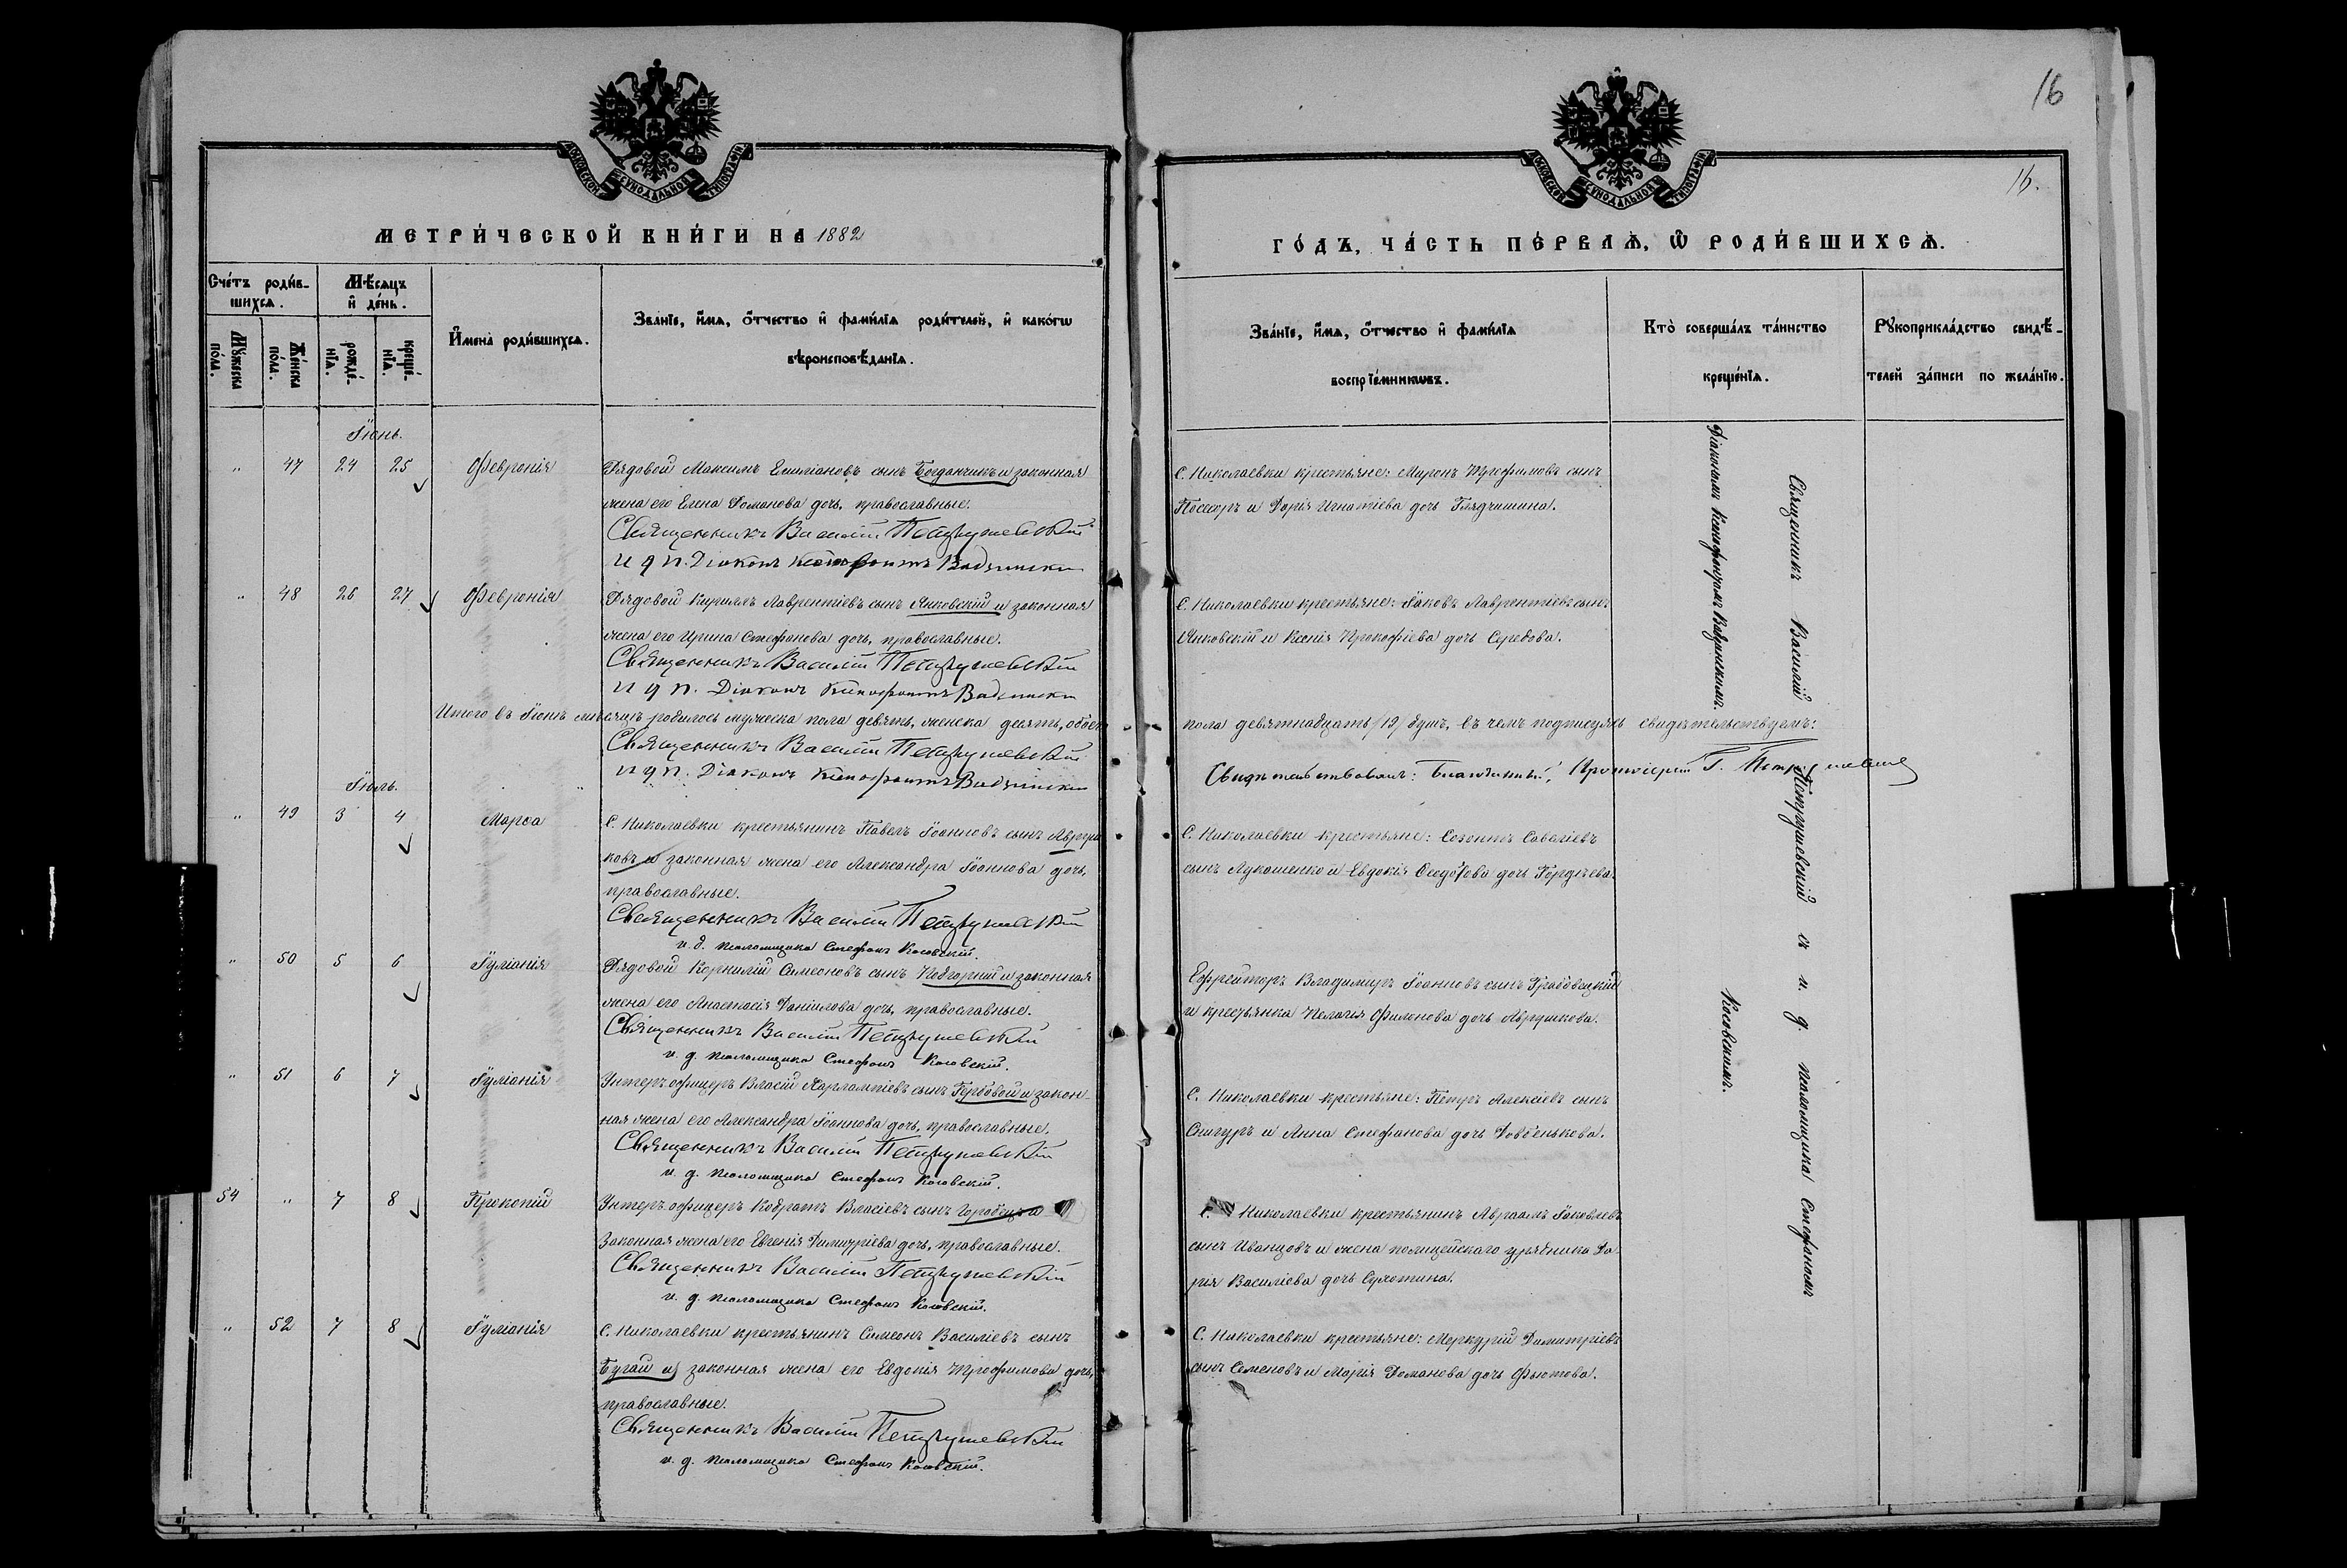 16
МОСКОВСКОЙ СѴНОДАЛЬНОЙ ТИПОГРАФІИ
МОСКОВСКОЙ СѴНОДАЛЬНОЙ ТИПОГРАФІИ
16.
МЕТРИ́ЧЕСКОЙ КНИ́ГИ НА 1882
ГО́ДЪ, ЧА́СТЬ ПЕ́РВАѦ, Ѡ҆ РОДИ́ВШИХСѦ.
Сче́тъ роди́в-
шихсѧ.
Мѣ́сѧцъ
и҆ де́нь.
Мꙋ́жеска
по́ла.
Же́нска
по́ла.
рожде́-
нїѧ.
креще́-
нїѧ.
И҆мена̀ роди́вшихсѧ.
Зва́нїе, и҆́мѧ, ѻ҆́тчество и҆ фами́лїѧ роди́телей, и҆ како́гѡ
вѣроисповѣ́данїѧ.
Зва́нїе, и҆́мѧ, ѻ҆́тчество и҆ фами́лїѧ
воспрїе́мникѡвъ.
Кто̀ соверша́лъ та́инство
креще́нїѧ.
Рꙋкоприкла́дство свидѣ́-
телей за́писи по жела́нїю.
Іюнь.
" 47 24 25 Февронія Рядовой Максимъ Емиліановъ сынъ Богданчикъ и законная
жена его Елена Романова дочь, православные.
Священникъ Василій Петрушевскій
и д п. Діаконъ Ксенофонтъ
С. Николаевки крестьяне: Миронъ Трофимовъ сынъ
Посесоръ и Дарія Игнатіева дочь
" 48 26 27 Февронія Рядовой Кириллъ Лаврентіевъ сынъ Янковскій и законная
жена его Ирина Стефанова дочь, православные.
Священникъ Василій Петрушевскій
и д п. Діаконъ Ксенофонтъ
С. Николаевки крестьяне: Іаковъ Лаврентіевъ сынъ
Янковскій и Ксенія Прокофіева дочь Середова.
Итого въ Іюнѣ мѣсяцѣ родилось мужеска пола девять, женска десять, обоего
пола девятнадцать /19/ душъ, въ чемъ подписуясь свидѣтельствуемъ:
Священникъ Василій Петрушевскій
и д п. Діаконъ Ксенофонтъ
Свидѣтельствовалъ: Благочинный, Протоіерей Г. Петрушевскій
Іюль.
" 49 3 4 Марѳа С. Николаевки крестьянинъ Павелъ Іоанновъ сынъ Авруш
ковъ и законная жена его Александра Іоаннова дочь,
православные.
Священникъ Василій Петрушевскій
и. д. псаломщика Стефанъ Косовскій.
С. Николаевки крестьяне: Созонтъ Савеліевъ
сынъ Лукошенко и Евдокія Ѳедотова дочь Гордѣева.
" 50 5 6 Іуліанія Рядовой Корнилій Симеоновъ сынъ Подгорный и законная
жена его Анастасія Даніилова дочь, православные.
Священникъ Василій Петрушевскій
и. д. псаломщика Стефанъ Косовскій.
Ефрейторъ Владимиръ Іоанновъ сынъ Грабовецкій
и крестьянка Пелагія Филонова дочь Аврушкова.
" 51 6 7 Іуліанія Унтеръ офицеръ Власій Харлампіевъ сынъ Гербовой и закон-
ная жена его Александра Іоаннова дочь, православные.
Священникъ Василій Петрушевскій
и. д. псаломщика Стефанъ Косовскій.
С. Николаевки крестьяне: Петръ Алексіевъ сынъ
Снигуръ и Анна Стефанова дочь Довбенькова.
54 " 7 8 Прокопій Унтеръ-офицеръ Кодратъ Власіевъ сынъ Горобецъ и
законная жена его Евгенія Димитріева дочь, православные.
Священникъ Василій Петрушевскій
и. д. псаломщика Стефанъ Косовскій.
С. Николаевки крестьянинъ Авраамъ Іаковлевъ
сынъ Иванцовъ и жена полицейскаго урядника Да-
рія Василіева дочь Сухотина.
" 52 7 8 Іуліанія С. Николаевки крестьянинъ Симеонъ Василіевъ сынъ
Бугай и законная жена его Евдокія Трофимова дочь,
православные.
Священникъ Василій Петрушевскій
и. д. псаломщика Стефанъ Косовскій.
С. Николаевки крестьяне: Меркурій Димитріевъ
сынъ Семеновъ и Марія Романова дочь Фьютова.
Священникъ Василій Петрушевскій съ и. д. псаломщика Стефаномъ
Косовскимъ.
Діакономъ Ксенофонтомъ